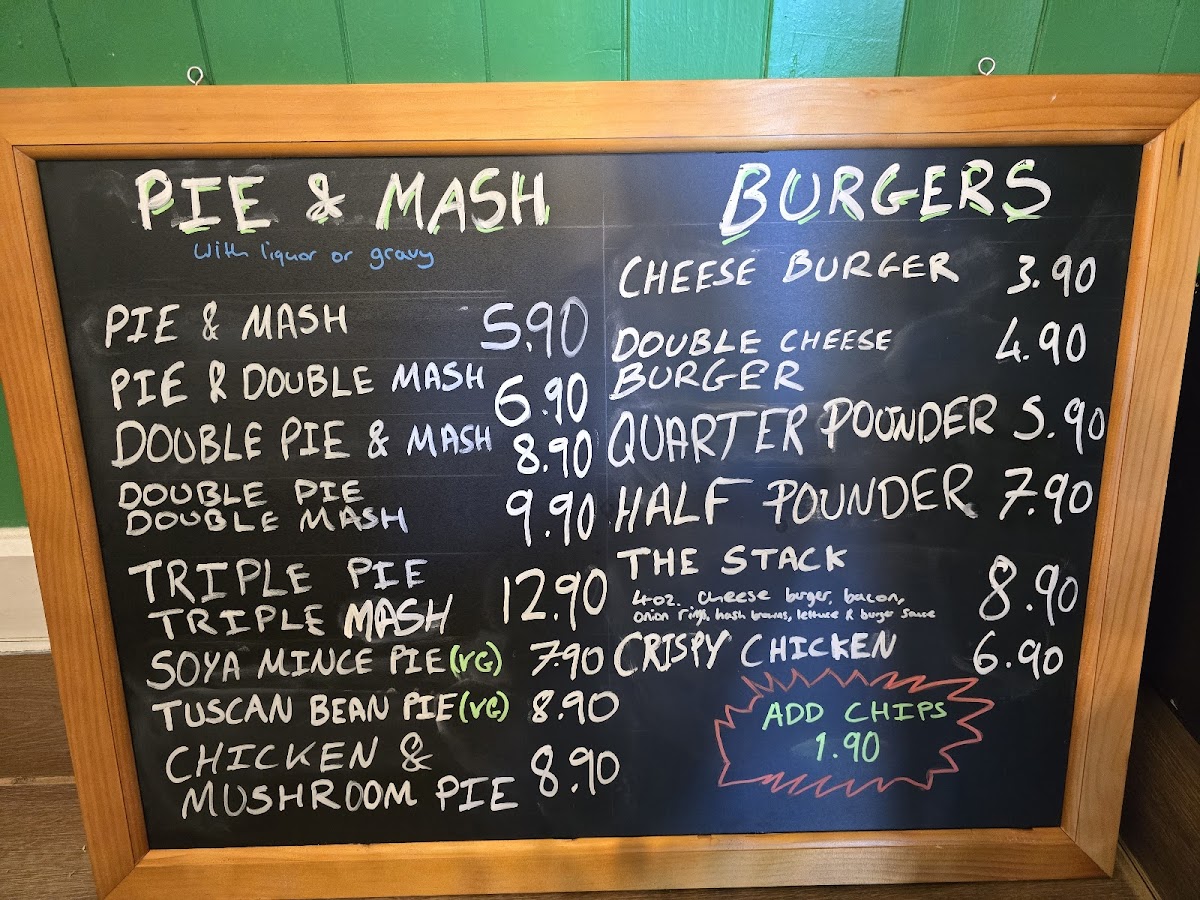 PIE & MASH
With liquor or gravy
PIE & MASH 5.90
PIE & DOUBLE MASH 6.90
DOUBLE PIE & MASH 8.90
DOUBLE PIE
DOUBLE MASH 9.90
TRIPLE PIE
TRIPLE MASH 12.90
SOYA MINCE PIE (VG) 7.90
TUSCAN BEAN PIE (VG) 8.90
CHICKEN &
MUSHROOM PIE 8.90
BURGERS
CHEESE BURGER 3.90
DOUBLE CHEESE
BURGER 4.90
QUARTER POUNDER 5.90
HALF POUNDER 7.90
THE STACK 8.90
4oz. cheese burger, bacon,
onion rings, hash browns, lettuce & burger sauce
CRISPY CHICKEN 6.90
ADD CHIPS
1.90